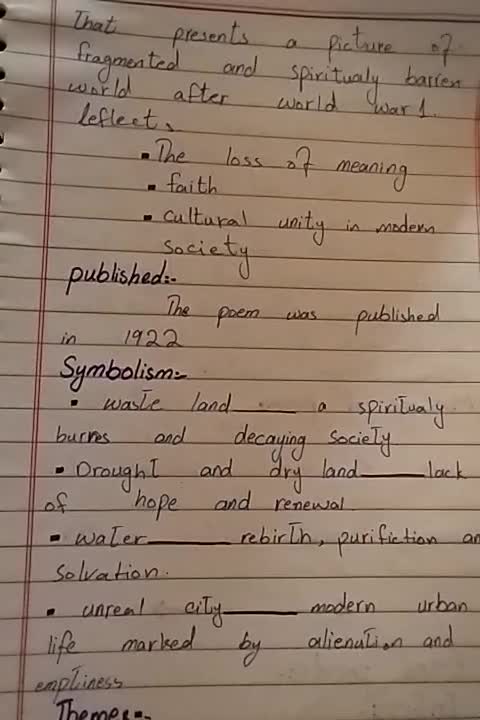 That presents a picture of
fragmented and spiritualy barren
world after world war 1.
leflect,
▪ The loss of meaning
▪ faith
▪ cultural unity in modern
society
published:-
The poem was published
in 1922
Symbolism:-
▪ waste land____ a spiritualy
burres and decaying society
▪ Drought and dry land____lack
of hope and renewal
▪ water____ rebirth, purifiction an
solvation.
▪ unreal city____ modern urban
life marked by alienation and
emptiness
Themes:-